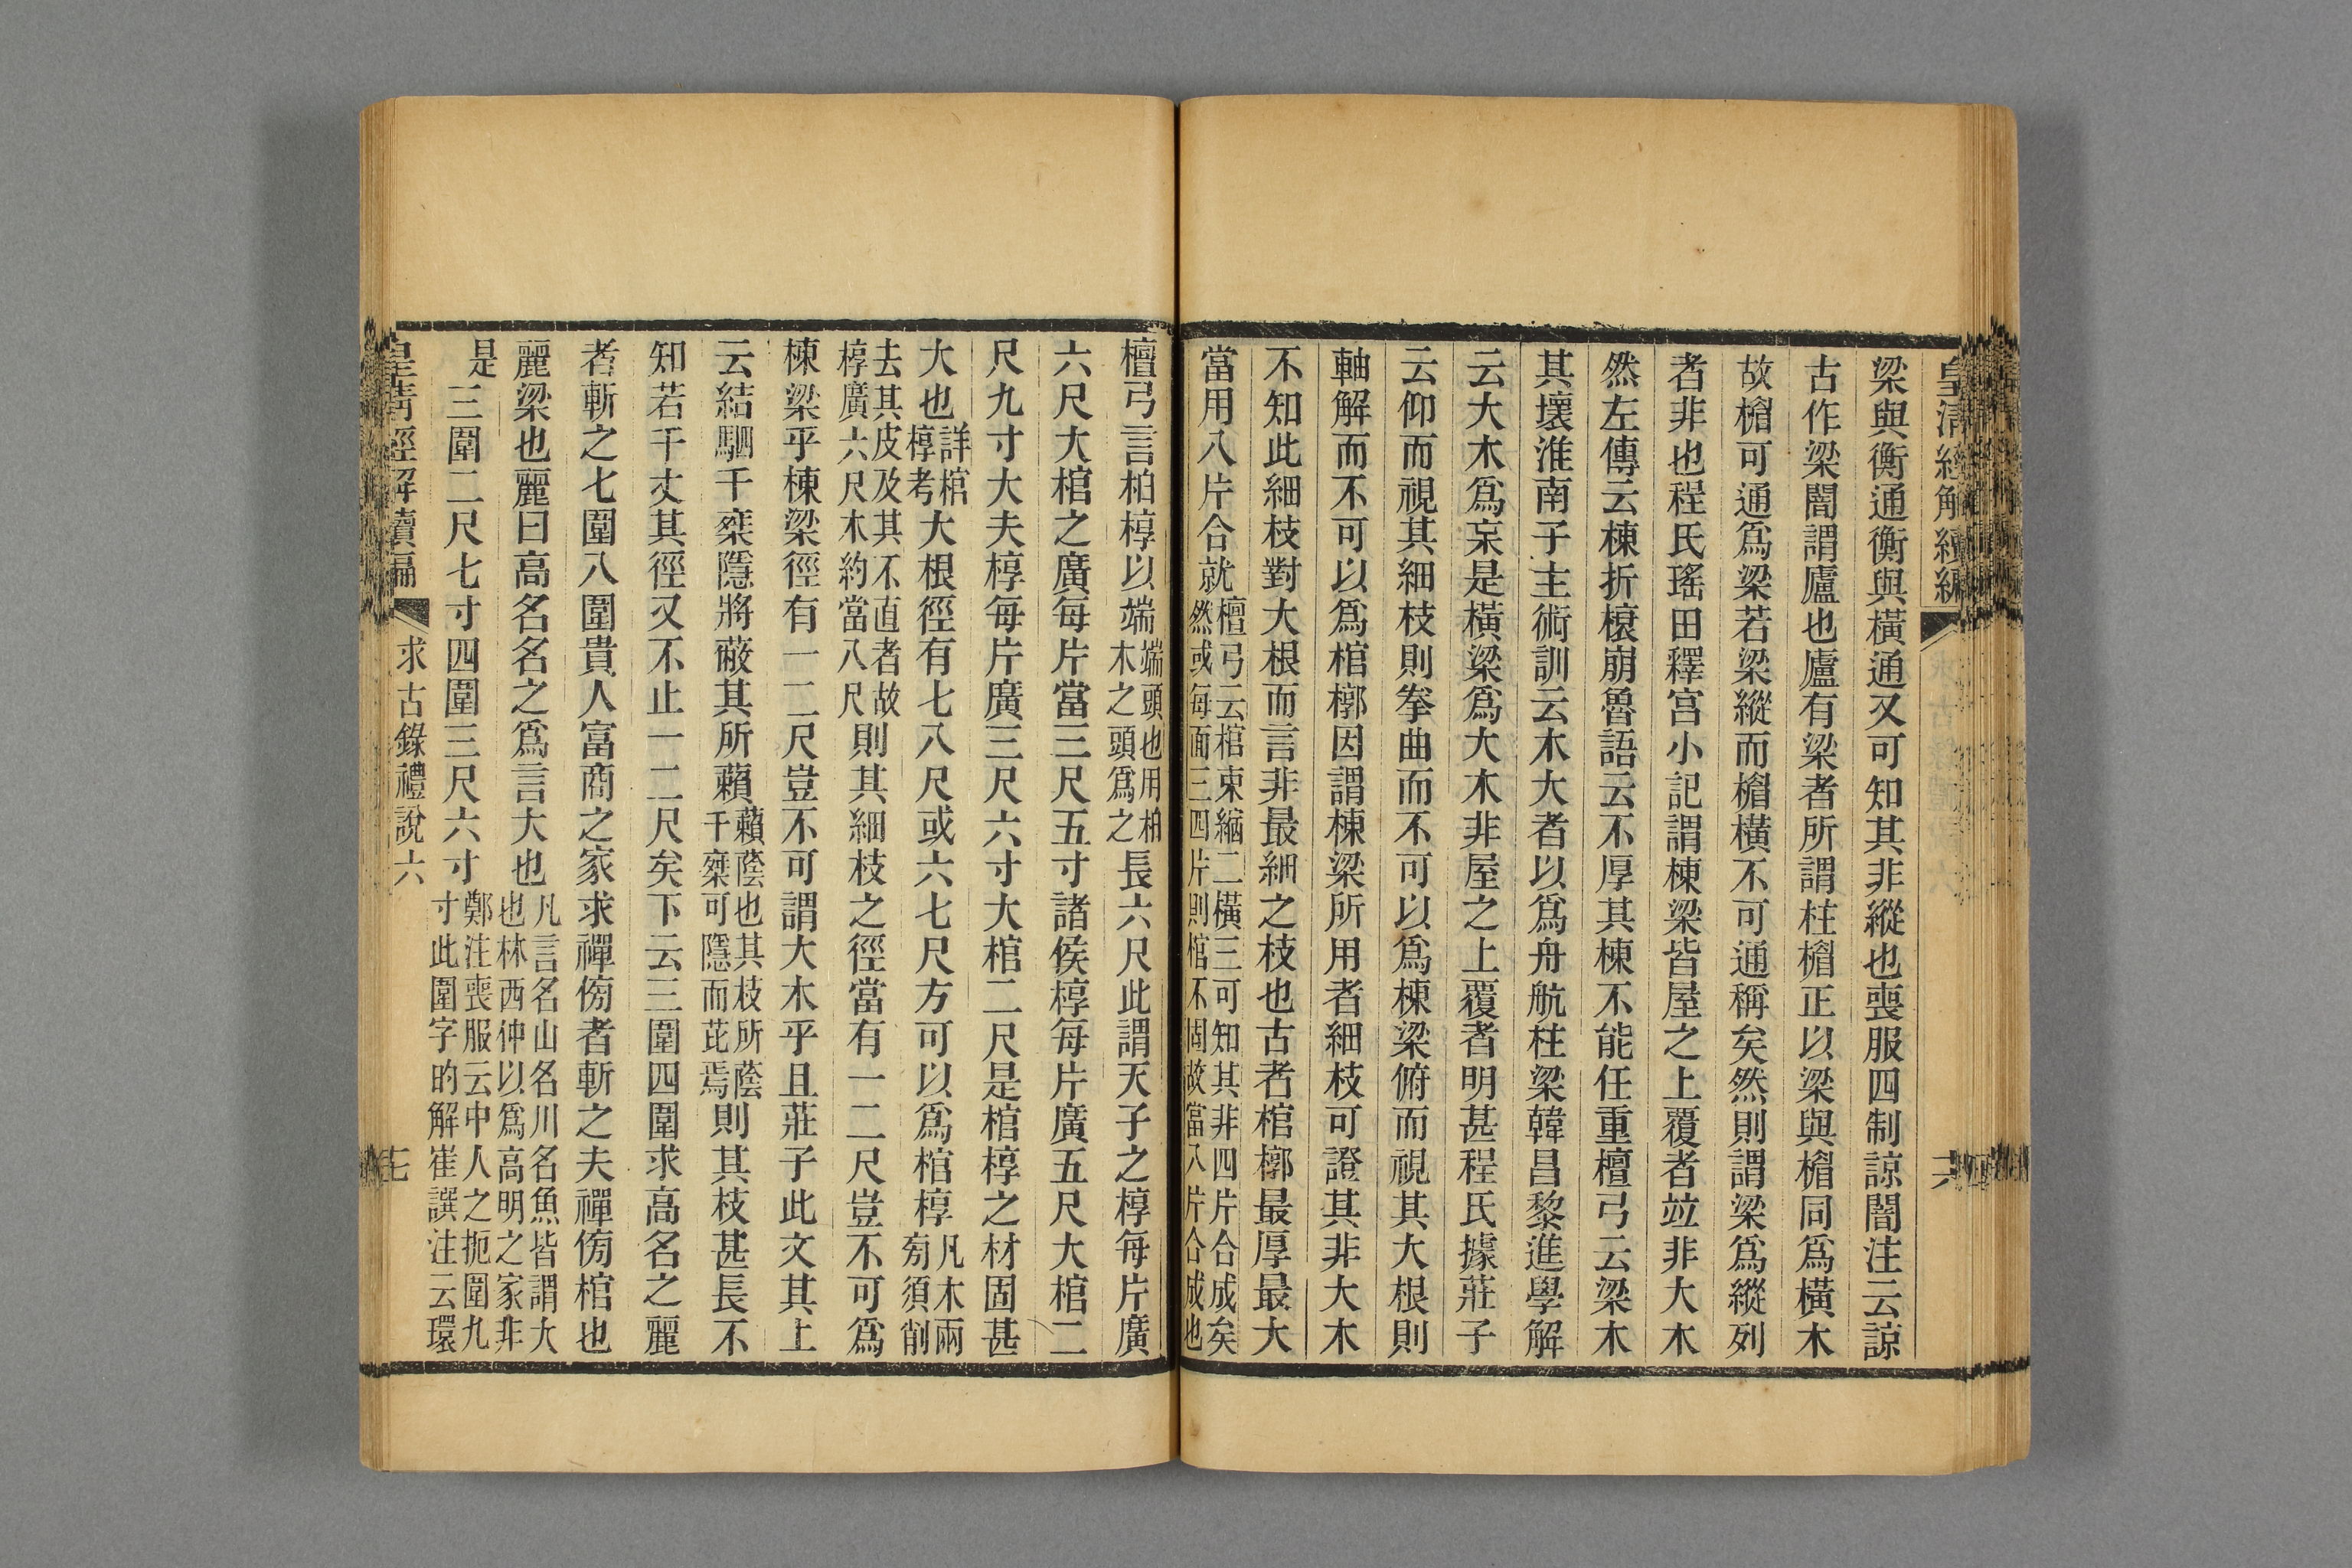 皇清經解續編
梁與衡通衡與橫通又可知其非縱也喪服四制諒闇注云諒
古作梁闇謂廬也廬有梁者所謂柱楣正以梁與楣同爲橫木
故楣可通爲梁若梁縱而楣橫不可通稱矣然則謂梁爲縱列
者非也程氏瑤田釋宮小記謂棟梁皆屋之上覆者竝非大木
然左傳云棟折榱崩魯語云不厚其棟不能任重檀弓云梁木
其壞淮南子主術訓云木大者以爲舟航柱梁韓昌黎進學解
云大木爲杗是橫梁爲大木非屋之上覆者明甚程氏據莊子
云仰而視其細枝則拳曲而不可以爲棟梁俯而視其大根則
軸解而不可以爲棺槨因謂棟梁所用者細枝可證其非大木
不知此細枝對大根而言非最細之枝也古者棺槨最厚最大
當用八片合就檀弓云棺束縮二橫三可知其非四片合成矣
然或每面三四片則棺不固故當八片合成也
檀弓言柏椁以端端頭也用柏
木之頭爲之長六尺此謂天子之椁每片廣
六尺大棺之廣每片當三尺五寸諸侯椁每片廣五尺大棺二
尺九寸大夫椁每片廣三尺六寸大棺二尺是棺椁之材固甚
大也詳棺
椁考大根徑有七八尺或六七尺方可以爲棺椁凡木兩
旁須削
去其皮及其不直者故
椁廣六尺木約當八尺則其細枝之徑當有一二尺豈不可爲
棟梁乎棟梁徑有一二尺豈不可謂大木乎且莊子此文其上
云結駟千乘隱將蔽其所藾藾蔭也其枝所蔭
千乘可隱而芘焉則其枝甚長不
知若干丈其徑又不止一二尺矣下云三圍四圍求高名之麗
者斬之七圍八圍貴人富商之家求禪傍者斬之夫禪傍棺也
麗梁也麗曰高名名之爲言大也凡言名山名川名魚皆謂大
也林西仲以爲高明之家非
是三圍二尺七寸四圍三尺六寸鄭注喪服云中人之扼圍九
寸此圍字的解崔譔注云環
皇清經解續編
求古錄禮說六
七